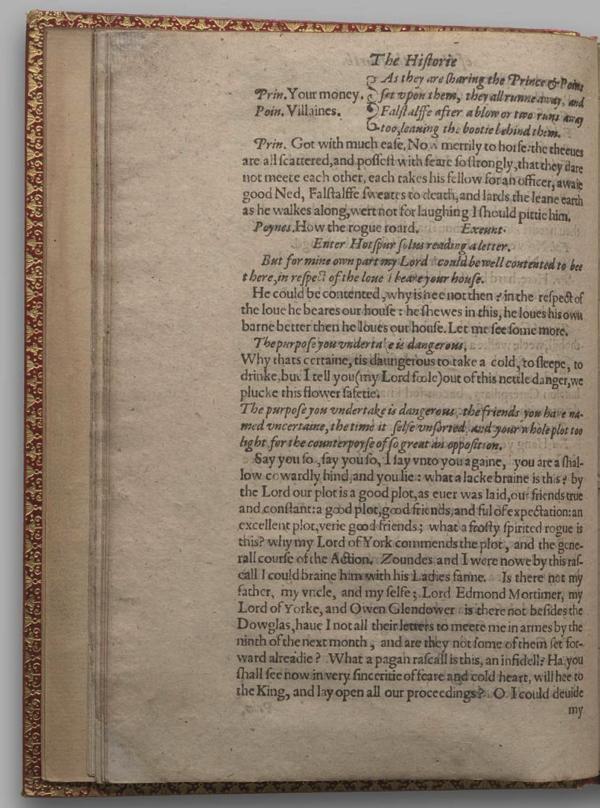 The Historie
As they are sharing the Prince & Poins
Prin. Your money. set vpon them, they all runne away, and
Poin. Villaines. Falstalffe after a blow or two runs away
too, leauing the bootie behind them.
Prin. Got with much ease. Now merrily to horse: the theeues
are all scattered, and possest with feare so strongly, that they dare
not meete each other, each takes his fellow for an officer, awaie
good Ned, Falstalffe sweates to death, and lards the leane earth
as he walkes along, wert not for laughing I should pittie him.
Poynes. How the rogue roard. Exeunt.
Enter Hotspur solus reading a letter.
But for mine own part my Lord I could be well contented to bee
there, in respect of the loue I beare your house.
He could be contented, why is hee not then? in the respect of
the loue he beares our house: he shewes in this, he loues his own
barne better then he loues our house. Let me see some more.
The purpose you vndertake is dangerous,
Why thats certaine, tis daungerous to take a cold, to sleepe, to
drinke, but I tell you (my Lord foole) out of this nettle danger, we
plucke this flower safetie.
The purpose you vndertake is dangerous, the friends you haue na-
med vncertaine, the time it selfe vnsorted, and your whole plot too
light for the counterpoyse of so great an opposition.
Say you so, say you so, I say vnto you againe, you are a shal-
low cowardly hind, and you lie: what a lacke braine is this? by
the Lord our plot is a good plot, as euer was laid, our friends true
and constant: a good plot, good friends, and ful of expectation: an
excellent plot, verie good friends; what a frosty spirited rogue is
this? why my Lord of York commends the plot, and the gene-
rall course of the Action. Zoundes and I were nowe by this ras-
call I could braine him with his Ladies fanne. Is there not my
father, my vncle, and my selfe; Lord Edmond Mortimer, my
Lord of Yorke, and Owen Glendower is there not besides the
Dowglas, haue I not all their letters to meete me in armes by the
ninth of the next month, and are they not some of them set for-
ward alreadie? What a pagan rascall is this, an infidell? Ha you
shall see now in very sinceritie of feare and cold heart, will hee to
the King, and lay open all our proceedings? O I could deuide
my